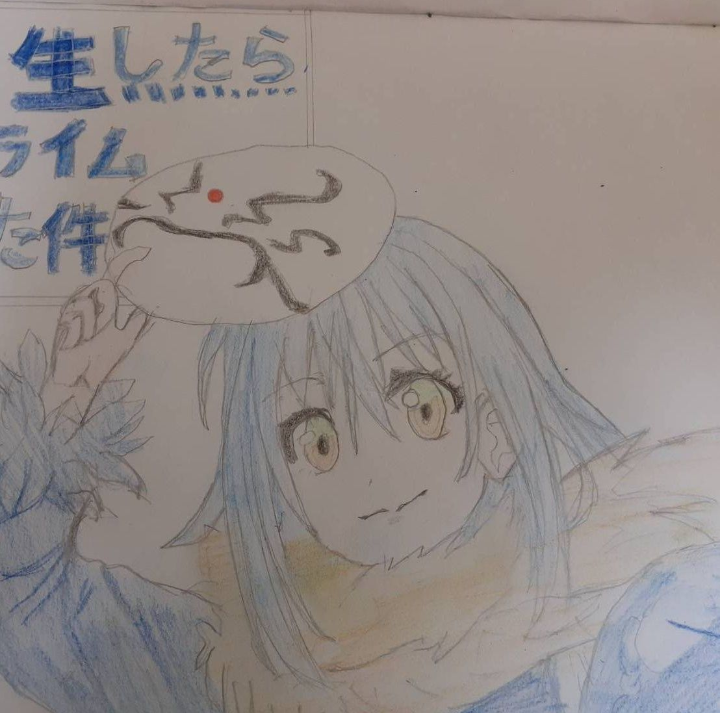 生したら
ライム
た件